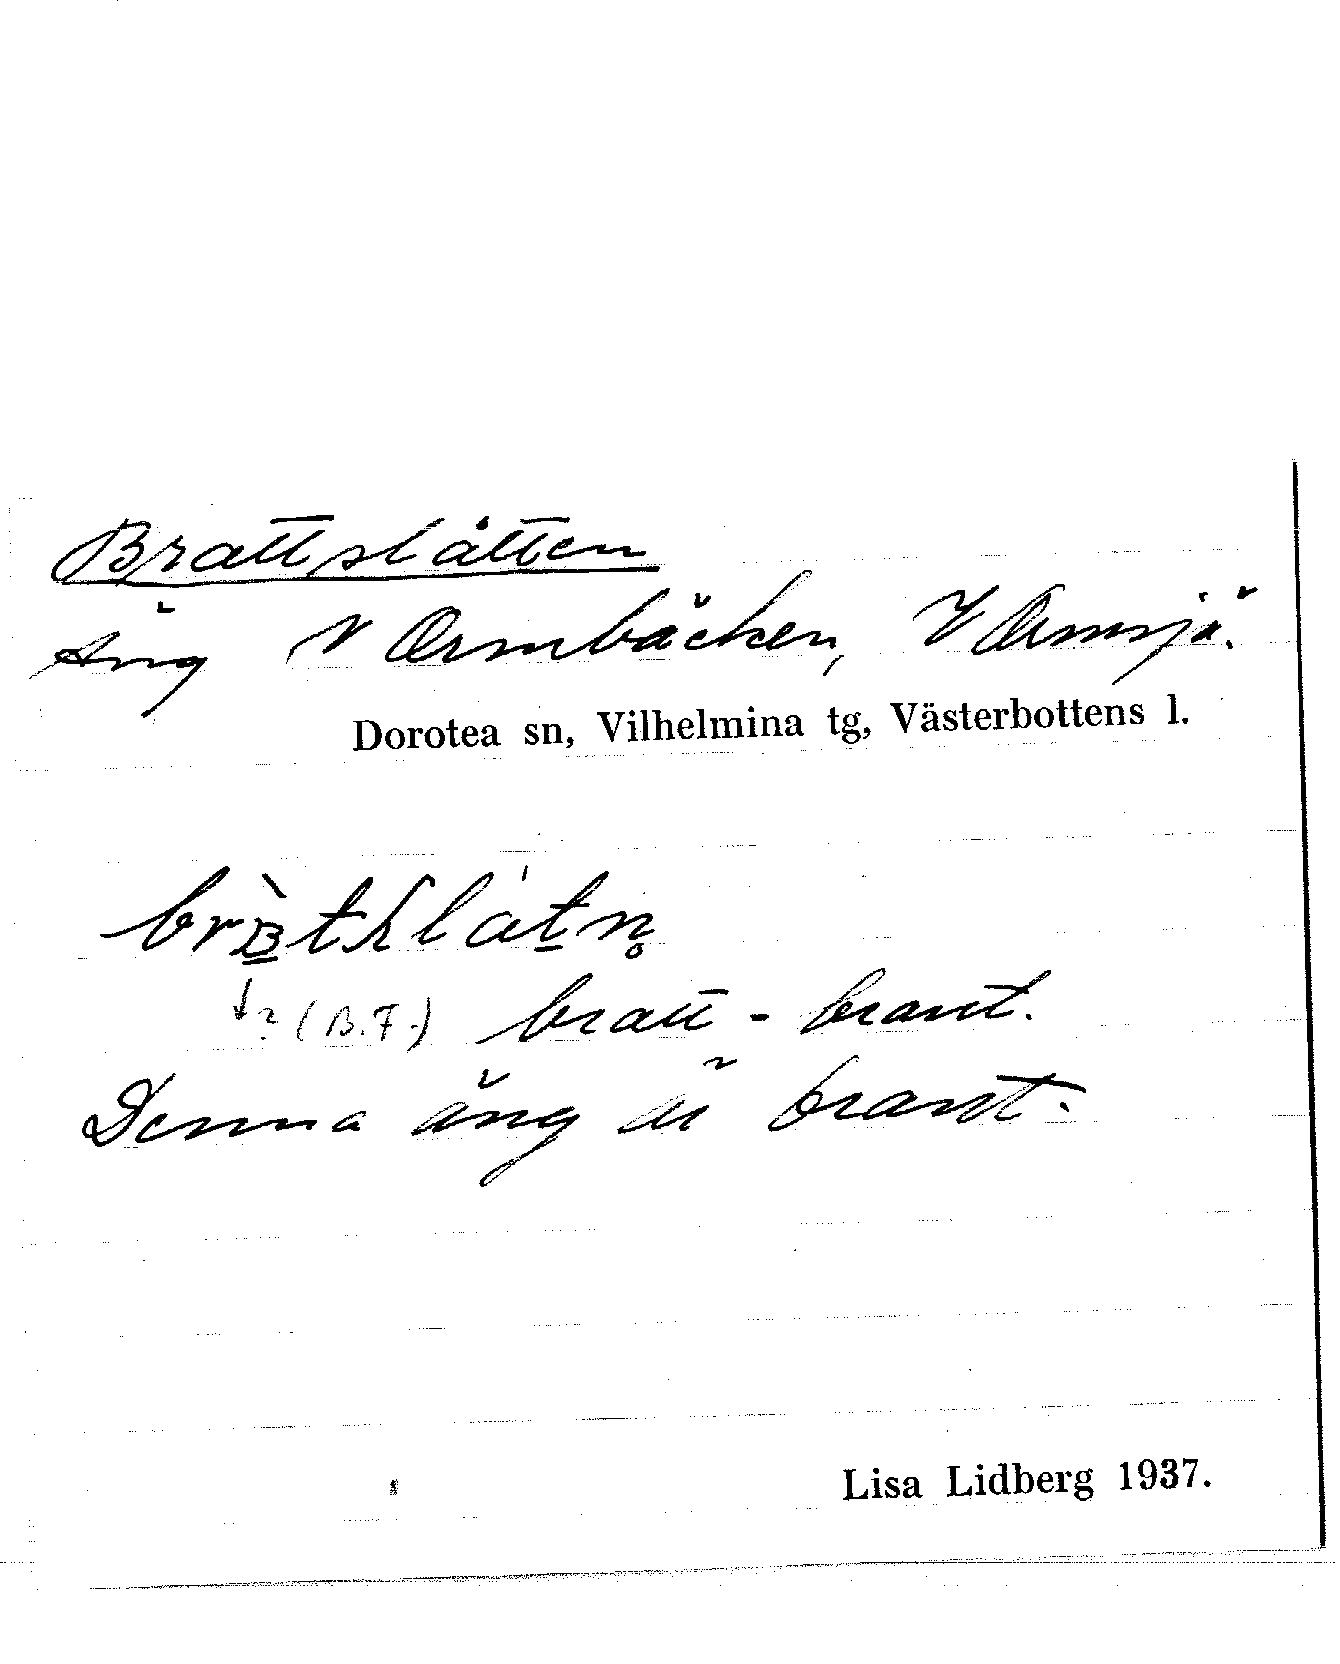 Brattslåtten
Äng N Ormbäcken, V Ormsjö.
Dorotea sn, Vilhelmina tg, Västerbottens l.
↓? (B.F.) bratt - brant.
Denna äng är brant.
Lisa Lidberg 1937.